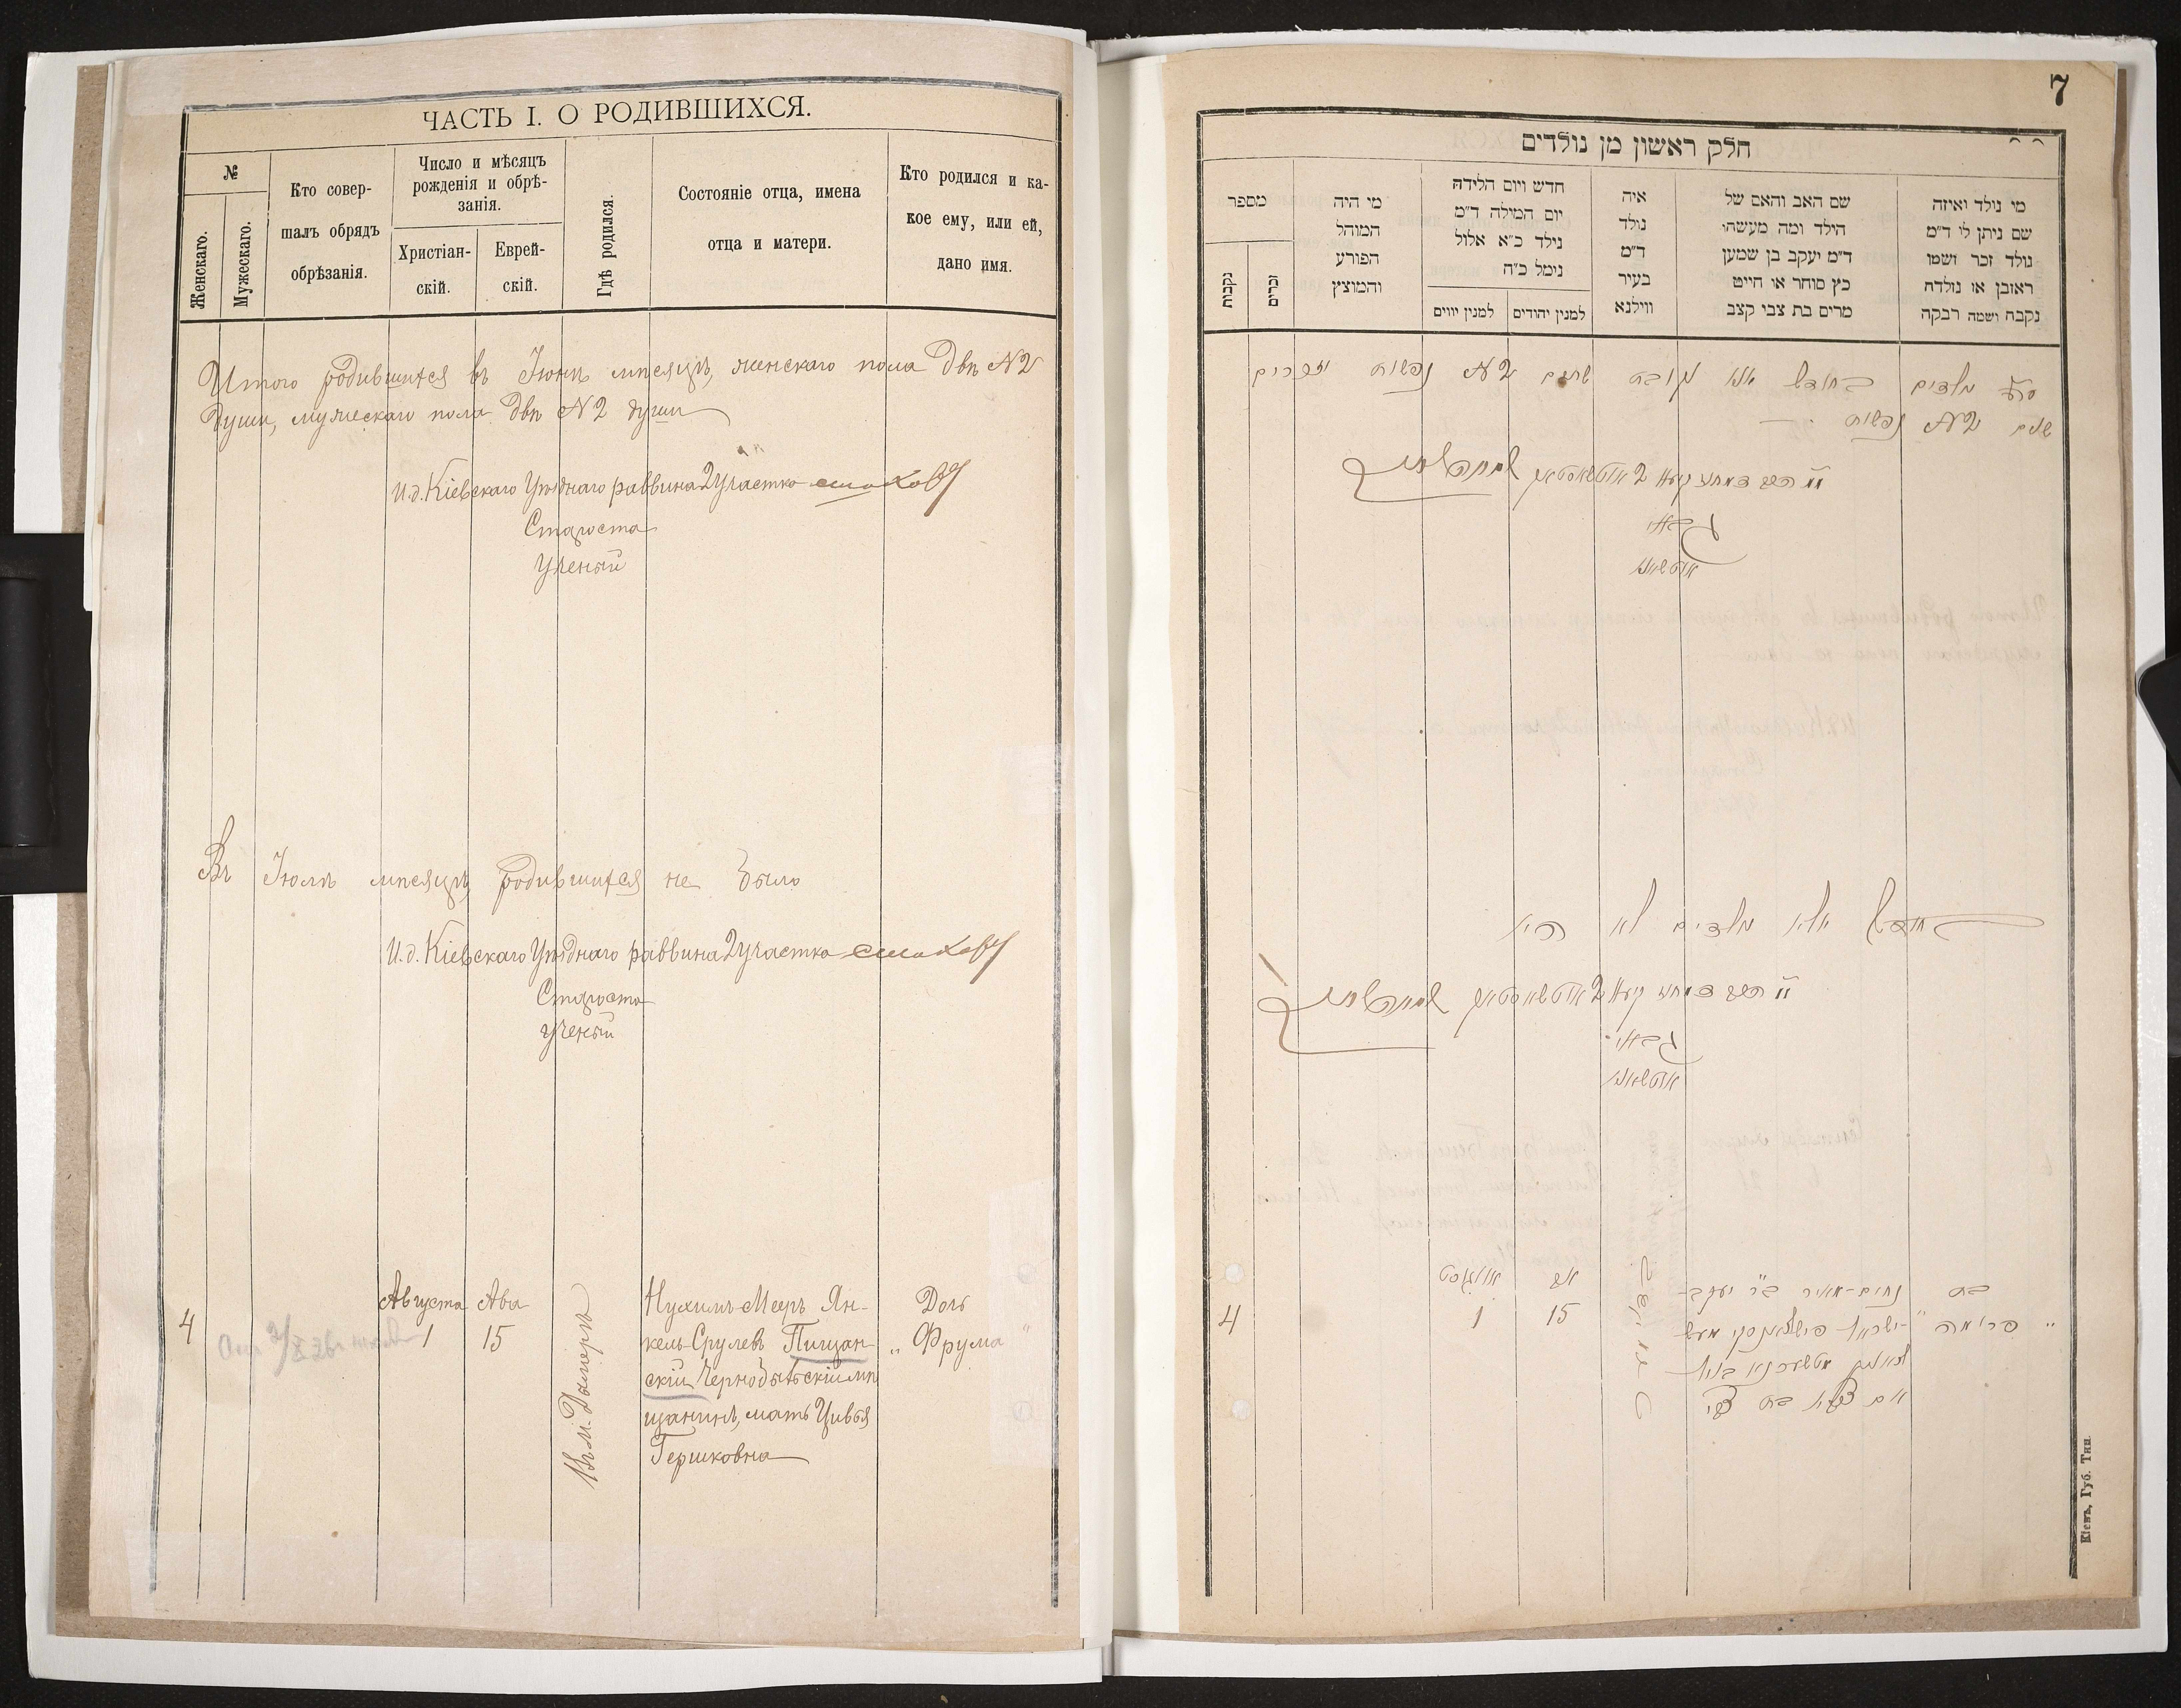 ЧАСТЬ I. О РОДИВШИХСЯ.
№
Женскаго.
Мужескаго.
Кто совер-
шалъ обрядъ
обрѣзанія.
Число и мѣсяцъ
рожденія и обрѣ-
занія.
Христіан-
скій.
Еврей-
скій.
Гдѣ родился.
Состояніе отца, имена
отца и матери.
Кто родился и ка-
кое ему, или ей,
дано имя.
Итого родившихся въ Іюнѣ мѣсяцѣ, женскаго пола двѣ №2
души, мужескаго пола двѣ №2 души
И.д. Кіевскаго Уѣзднаго раввина 2 участка
Староста
Ученый
Въ Іюлѣ мѣсяцѣ родившихся не было
И.д. Кіевскаго Уѣзднаго раввина 2 участка
Староста
Ученый
4
Августа
1
Ава
15
Въ м. Дымерѣ
Нухимъ-Мееръ Ян-
кель-Срулевъ Пищан-
скій Чернобыльскій мѣ
щанинъ, мать Цивья
Гершковна
Дочь
„ Фрума "
7
חלק ראשון מן נולדים
מי נולד ואיזה
שם ניתן לו ד״מ
נולד זכר ושמו
ראובן או נולדה
נקבה ושמה רבקה
שם האב והאם של
הילד ומה מעשהו
ד״מ יעקב בן שמעון
כץ סוחר או חייט
מרים בת צבי קצב
איה
נולד
ד״מ
בעיר
ווילנא
חדש ויום הלידה
יום המילה ד״מ
נילד כ״א אלול
נימל כ״ה
למנין יהודים
למנין יווים
מי היה
המוהל
הפורע
והמוצץ
מספר
זכרים
נקבות
שנים №2 נפשות
גבאי
בחודש יולי נולדים לא היו
גבאי
בת
„ פרומה "
נחום-מאיר ב״ר יעקב-
אם צביה בת צבי
אב
15
אווגוסט
1
4
Кіевъ, Губ. Тип.